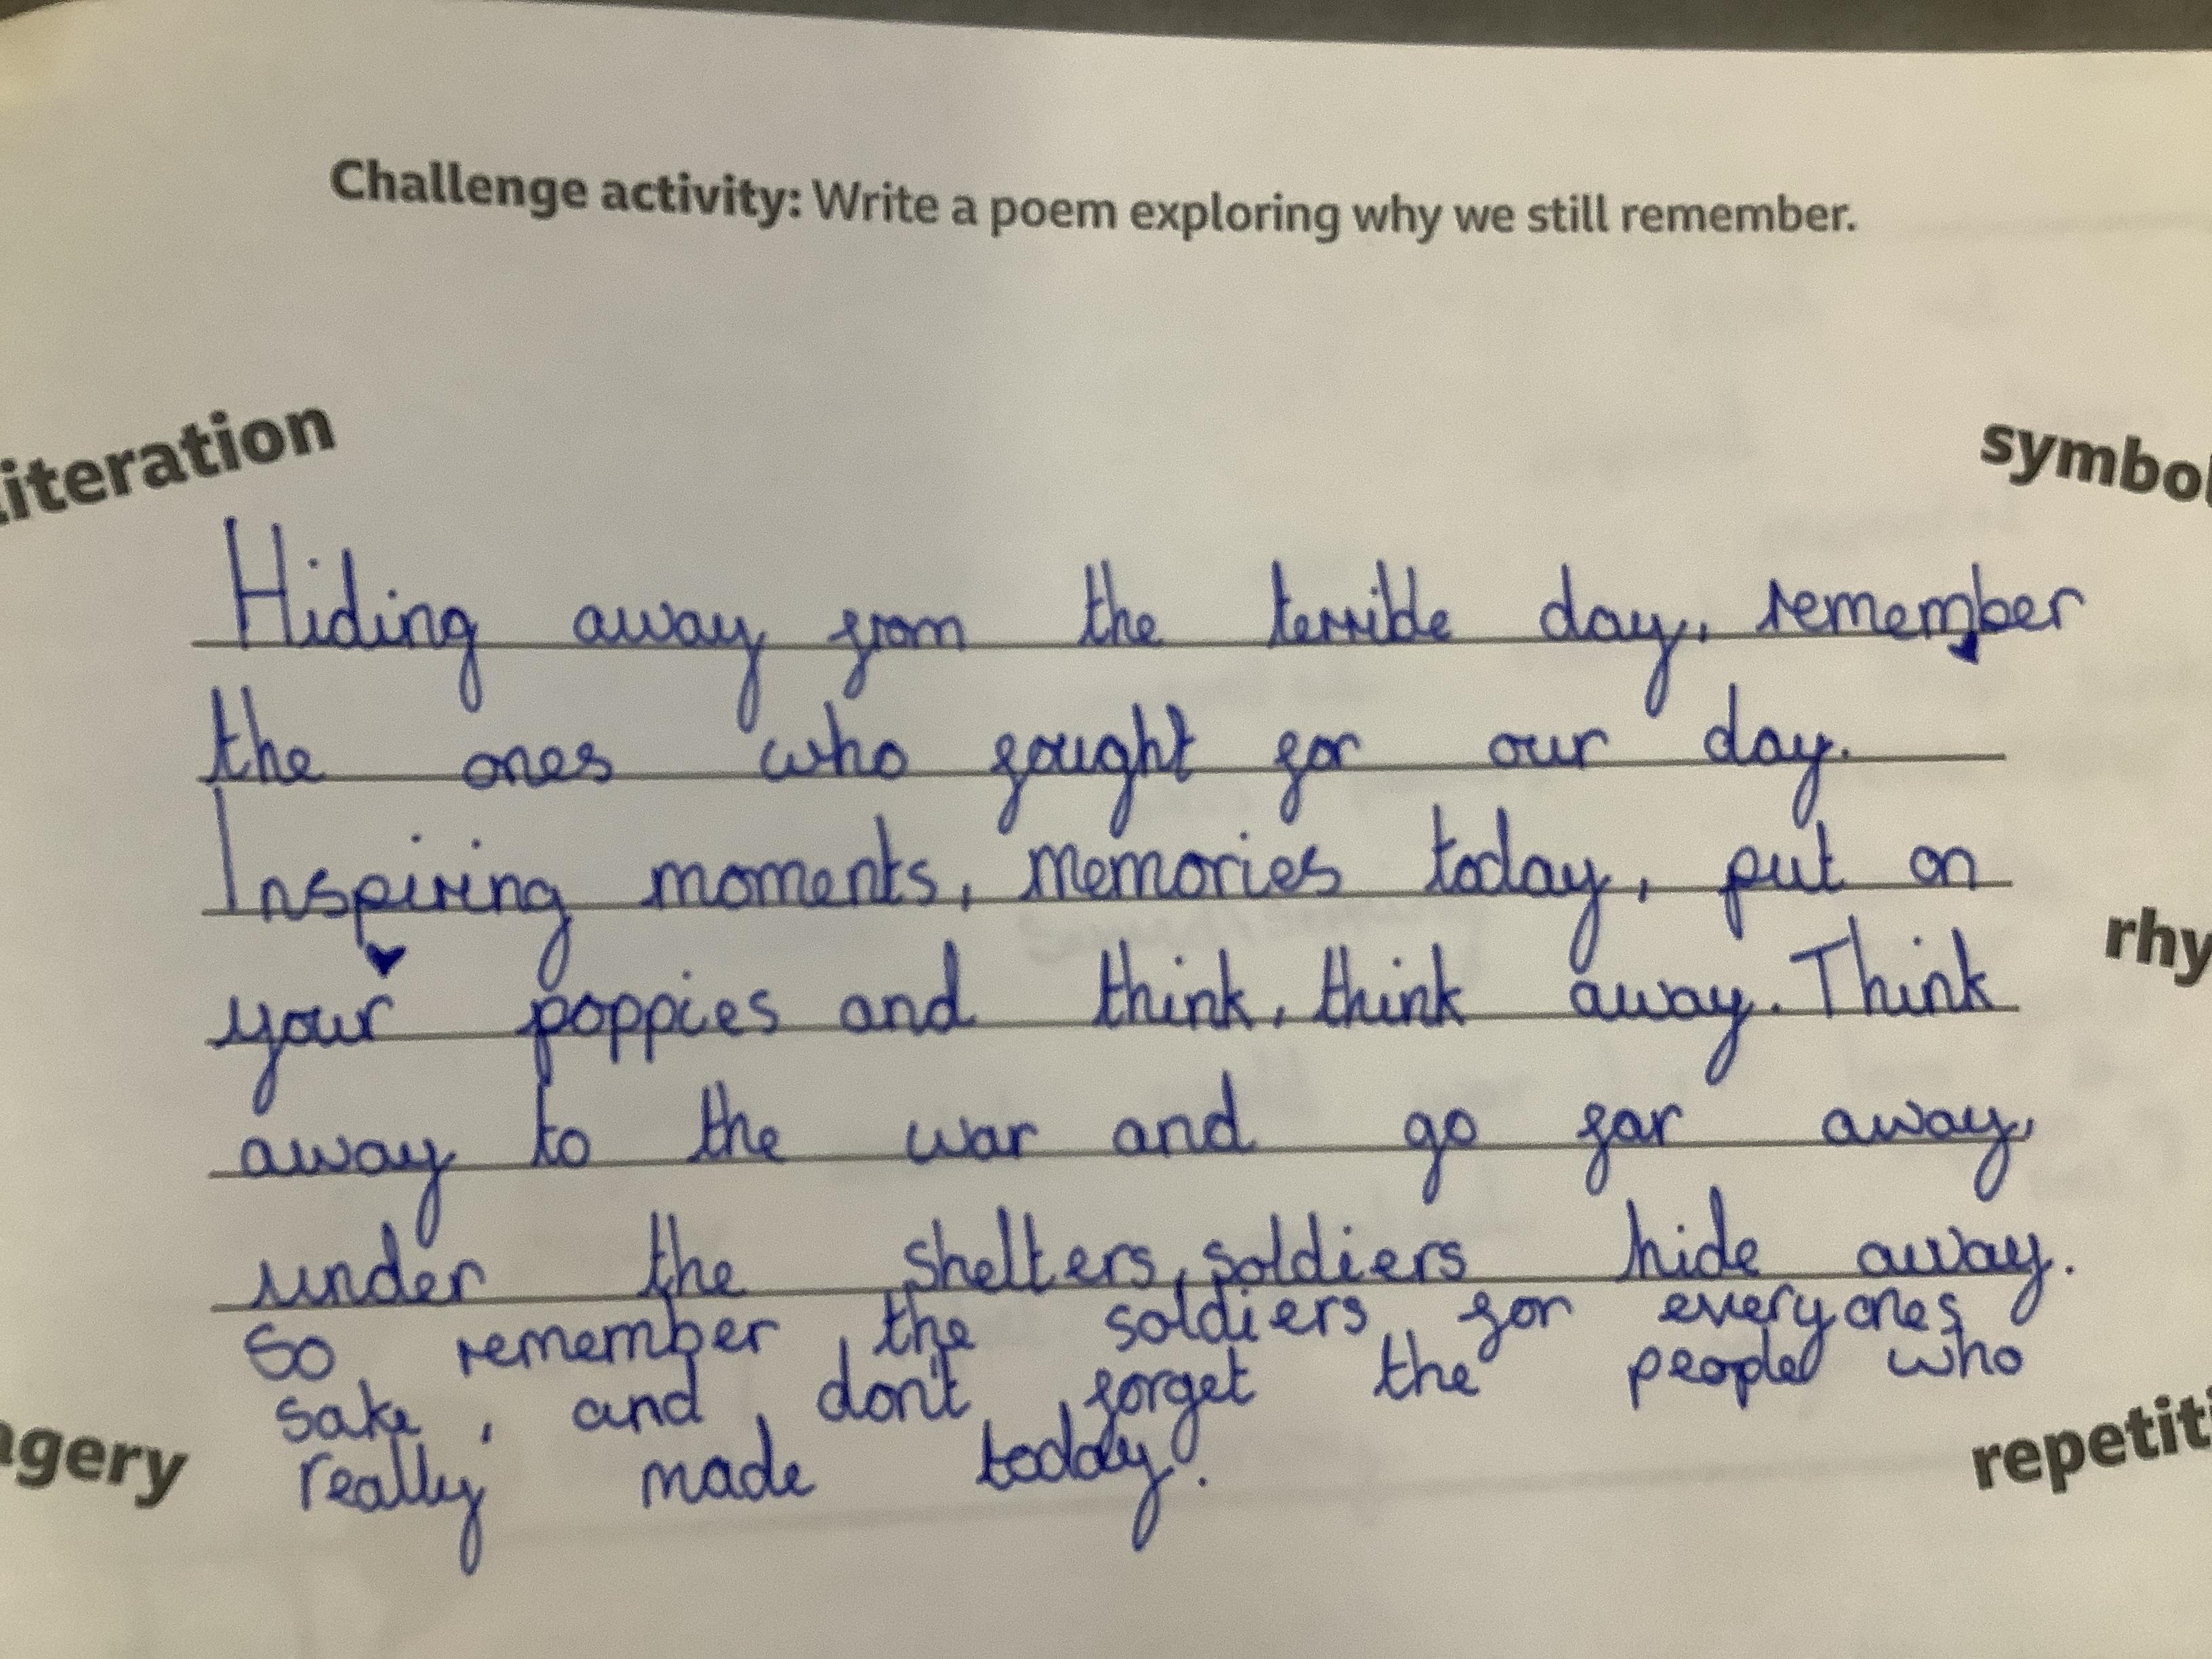 Challenge activity: Write a poem exploring why we still remember.
iteration
symbol
Hiding away from the terrible day, remember
the ones who fought for our day.
Inspiring moments, memories today, put on
rhy
your poppies and think, think away. Think
away to the war and go far away,
under the shelters, soldiers hide away.
So remember the soldiers for everyones
sake, and don't forget the people who
really made today.
agery
repetiti